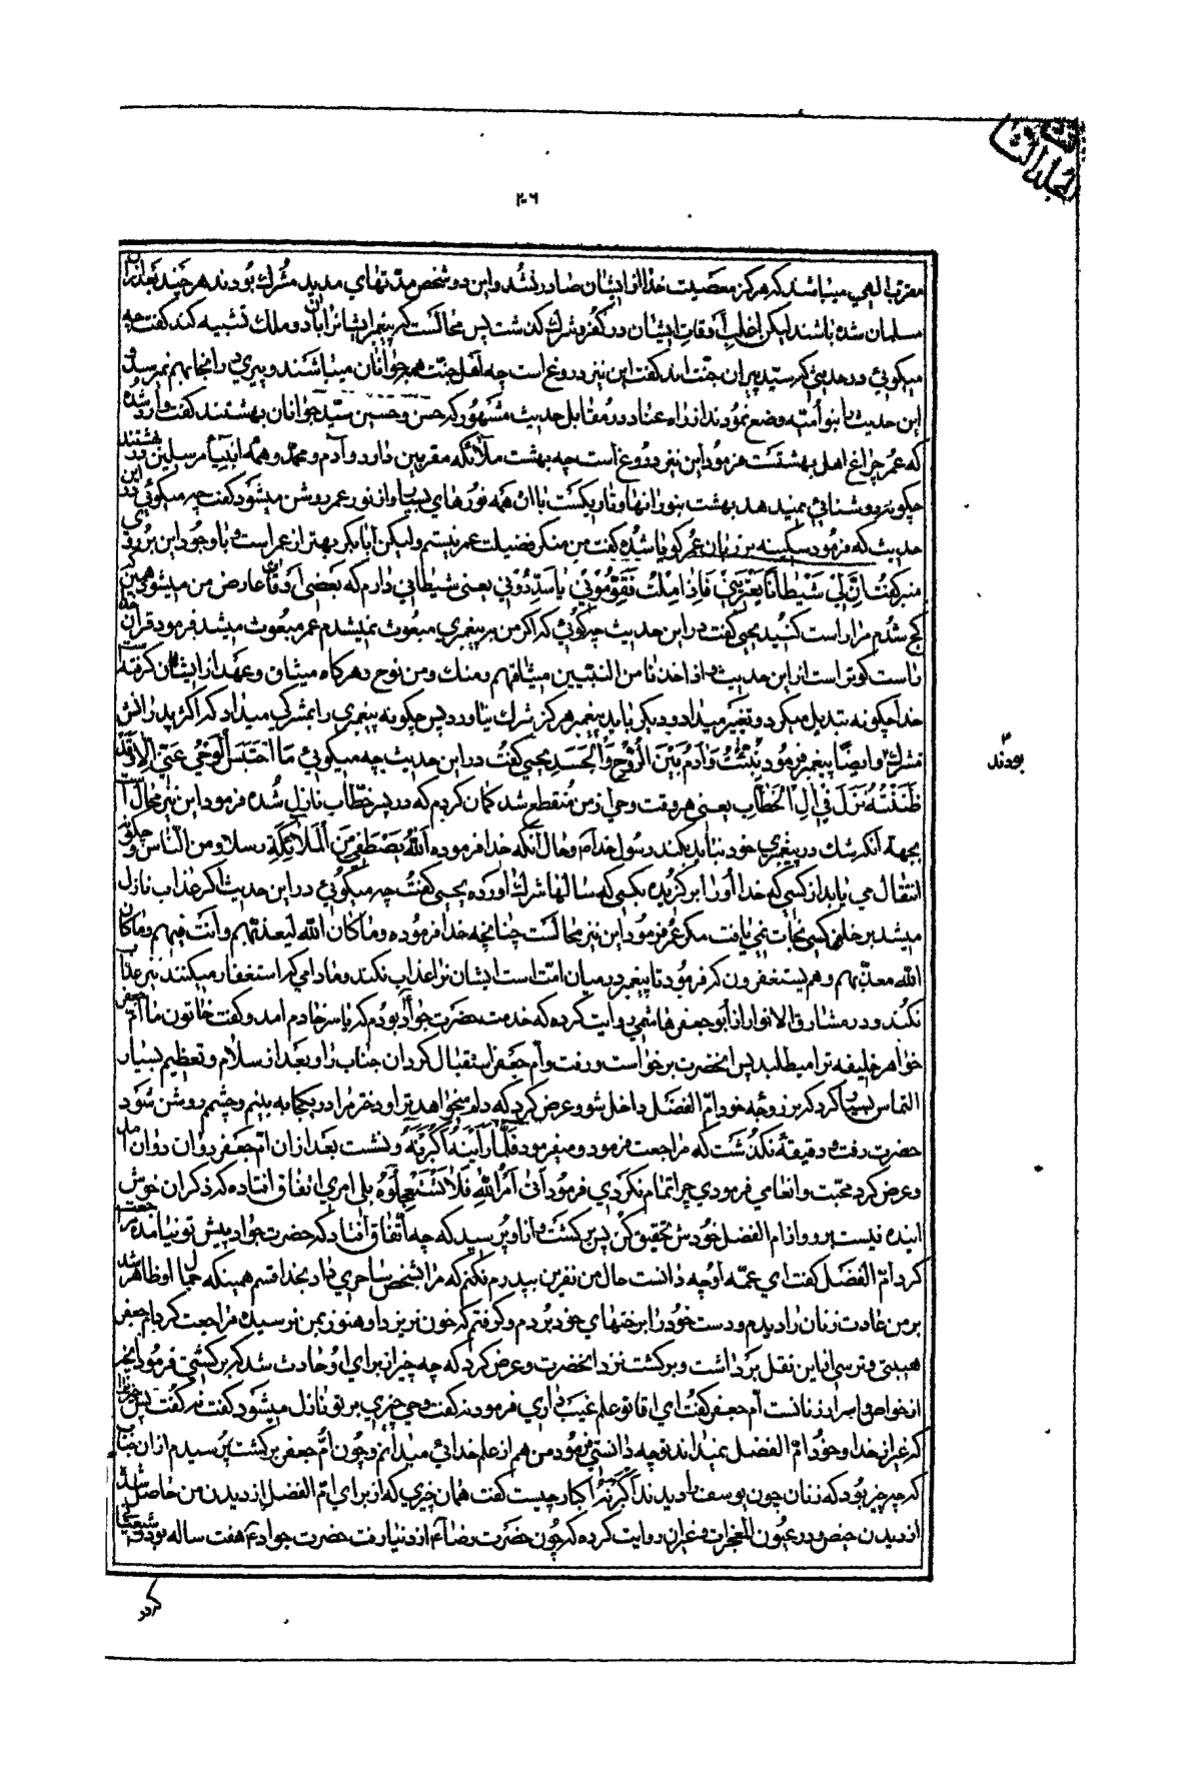 المجلد الثالث
۲۰۶
مقرب الهی میباشند که هرگز معصیت خدا از ایشان صادر نشد و این دو شخص مدتهای مدید مشرک بودند هر چند بعد از آن
مسلمان شده باشند لیکن اغلب اوقات ایشان در کفر و شرک گذشت پس محالست که پیغمبر ایشانرا با آن دو ملک تشبیه کند گفت چه
میگوئی در حدیثی که سید پیران جنت اند گفت این نیز دروغ است چه اهل جنت همه جوانان میباشند و پیری در انجا بهم نمیرسد و
این حدیث را بنو امیه وضع نمودند از راه عناد در مقابل حدیث مشهور که حسن و حسین سید جوانان بهشتند گفت وارد شده
که عمر چراغ اهل بهشتست فرمود این نیز دروغ است چه بهشت ملائکه مقربین و آدم و محمد و همه انبیا مرسلین در بهشتند
چگونه روشنائی نمیدهد بهشت بنور انها و تاریکست با این همه نورهای بسیار و از نور عمر روشن میشود گفت چه میگوئی در این
حدیث که فرمود سکینه بر زبان عمر گویا شده گفت من منکر فضیلت عمر نیستم ولیکن ابابکر بهتر از عمر است و با وجود این بر روی
منبر گفت اِنَّ لی شَیْطاناً یَعْتَرینی فَاِذا مِلْتُ فَقَوِّمُونی یا سَدِّدُونی یعنی شیطانی دارم که بعضی اوقات عارض من میشود همین که
کج شدم مرا راست کنید یحیی گفت در این حدیث چه گوئی که اگر من به پیغمبری مبعوث نمیشدم عمر مبعوث میشد فرمود قرآن خدا
راست گوتر است از این حدیث و اذ اخذنا من النبیین میثاقهم و منک و من نوح هرگاه میثاق و عهد از ایشان گرفته است
خدا چگونه تبدیل میکرد و تغییر میداد و دیگر باید پیغمبر هرگز شرک نیاورد پس چگونه پیغمبری را بمشرکی میداد که اکثر پدرانش
بودند
مشرک و ایضا پیغمبر فرمود نُبِّئْتُ وَ آدَمُ بَیْنَ الرُّوحِ وَ الْجَسَدِ یحیی گفت در این حدیث چه میگوئی مَا احْتَبَسَ الْوَحْیُ عَنّی اِلّا وَقَدْ
ظَنَنْتُهُ نَزَلَ فی آلِ الْخَطّابِ یعنی هر وقت وحی از من منقطع شد گمان کردم که در پسر خطّاب نازل شده فرمود این نیز محال است
بجهة آنکه شک در پیغمبری خود نباید بکند رسول خدا و حال آنکه خدا فرموده اَللهُ یَصْطَفی مِنَ الْمَلائِکَةِ رسلا و من الناس و چگونه
انتقال می یابد از کسی که خدا او را برگزیده بکسی که سالها شرک آورده یحیی گفت چه میگوئی در این حدیث اگر عذاب نازل
میشد بر خلق کسی نجات نمی یافت مگر عمر فرمود این نیز محالست چنانچه خدا فرموده و ما کان الله لیعذبهم و أنت فیهم و ما کان
الله معذبهم و هم یستغفرون که فرمود تا پیغمبر در میان امت است ایشان نرا عذاب نکند و مادامی که استغفار میکنند نیز عذاب
نکند و در مشارق الانوار از ابو جعفر هاشمی روایت کرده که خدمت حضرت جواد بودم که یاسر خادم آمد و گفت خاتون ما ام جعفر
خواهر خلیفه ترا میطلبد پس انحضرت برخواست و رفت و ام جعفر استقبال کرد ان جناب را و بعد از سلام و تعظیم بسیار
التماس بسیار کرد که بر زوجه خود ام الفضل داخل شو و عرض کرد که دلم میخواهد ترا و دخترم را در یکجا به بینم و چشمم روشن شود
حضرت رفت و دقیقهٔ نگذشت که مراجعت فرمود و میفرمود فَلَمّا رَاَیْنَهُ اَکْبَرْنَهُ و نشست بعد از ان ام جعفر دوان دوان امد
و عرض کرد محبت و انعامی فرمودی چرا تمام نکردی فرمود اَتی اَمْرُ اللهِ فَلا تَسْتَعْجِلُوهُ بلی امری اتفاق افتاده که ذکر ان خوش
اینده نیست برو و از ام الفضل خودش تحقیق کن پس برگشت و از او پرسید که چه اتفاق افتاد که حضرت جواد پیش تو نیامده مراجعت
کرد ام الفضل گفت ای عمه او چه دانست حال من نفرین بپدرم نکنم که مرا بشخص ساحری داد بخدا قسم همینکه جمال او ظاهر شد
بر من عادت زنان را دیدم و دست خود را بر رختهای خود بردم و گرفتم که خون نریزد و هنوز بمن نرسیده مراجعت کرد ام جعفر
هیبتی و ترسی از این نقل برداشت و برگشت نزد انحضرت و عرض کرد که چه چیز از برای او حادث شد که برگشتی فرمود
از خواص و اسرار زنانست ام جعفر گفت ای اقا تو علم غیب داری فرمودند گفت وحی چیزی بر تو نازل میشود گفت نه گفت پس
که غیر از خدا و خود ام الفضل نمیداند تو چه دانستی فرمود من هم از علم خدائی میدانم و چون ام جعفر برگشت پرسیدم از ان جناب
که چه چیز بود که زنان چون یوسف را دیدند اَکْبَرْنَهُ اکبار چیست گفت همان چیزی که از برای ام الفضل از دیدن من حاصل شد
از دیدن حیض و در عیون المعجزات و غیر ان روایت کرده که چون حضرت رضا ع از دنیا رفت حضرت جواد ع هفت ساله بود
کردد